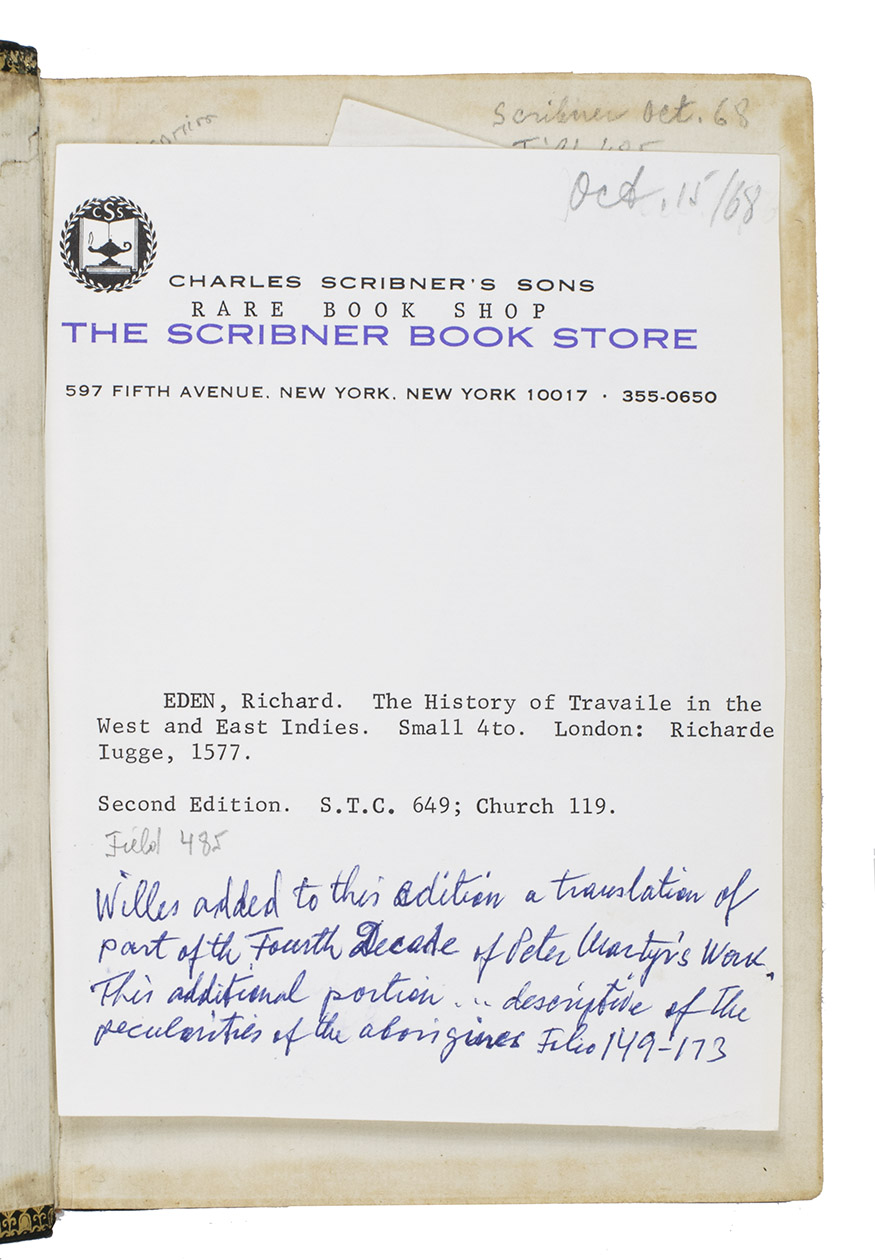 Scribner Oct. 68
Oct. 15/68
CSS
CHARLES SCRIBNER'S SONS
RARE BOOK SHOP
THE SCRIBNER BOOK STORE
597 FIFTH AVENUE, NEW YORK, NEW YORK 10017 · 355-0650
EDEN, Richard. The History of Travaile in the
West and East Indies. Small 4to. London: Richarde
Iugge, 1577.
Second Edition. S.T.C. 649; Church 119.
Field 485
Willes added to this edition a translation of
part of th Fourth Decade of Peter Martyr's Work.
This additional portion ... descriptive of the
pecularities of the aborigines Folio 149-173